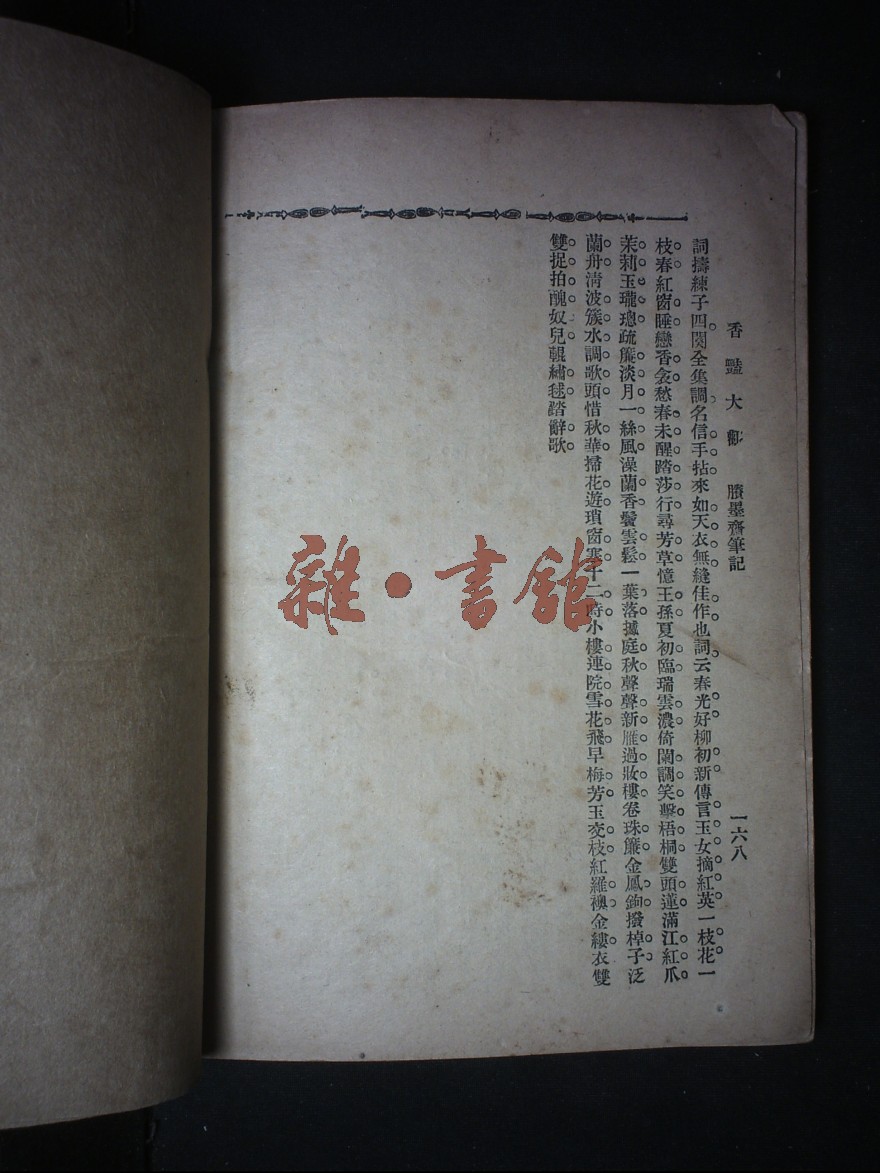 香豔大觀 賸墨齋筆記 一六八
詞擣練子四闋全集調名信手拈來如天衣無縫佳作也詞云春光好柳初新傳言玉女摘紅英一枝花一
枝春紅窗睡戀香衾愁春未醒踏莎行尋芳草憶王孫夏初臨瑞雲濃倚闌調笑擊梧桐雙頭蓮滿江紅爪
茉莉玉瓏璁疏簾淡月一絲風澡蘭香鬢雲鬆一葉落撼庭秋聲聲新雁過妝樓卷珠簾金鳳鉤撥棹子泛
蘭舟清波簇水調歌頭惜秋華掃花遊瑣窗寒十二時小樓連院雪花飛早梅芳玉交枝紅羅襖金縷衣雙
雙捉拍醜奴兒輥繡毬踏辭歌
雜·書館